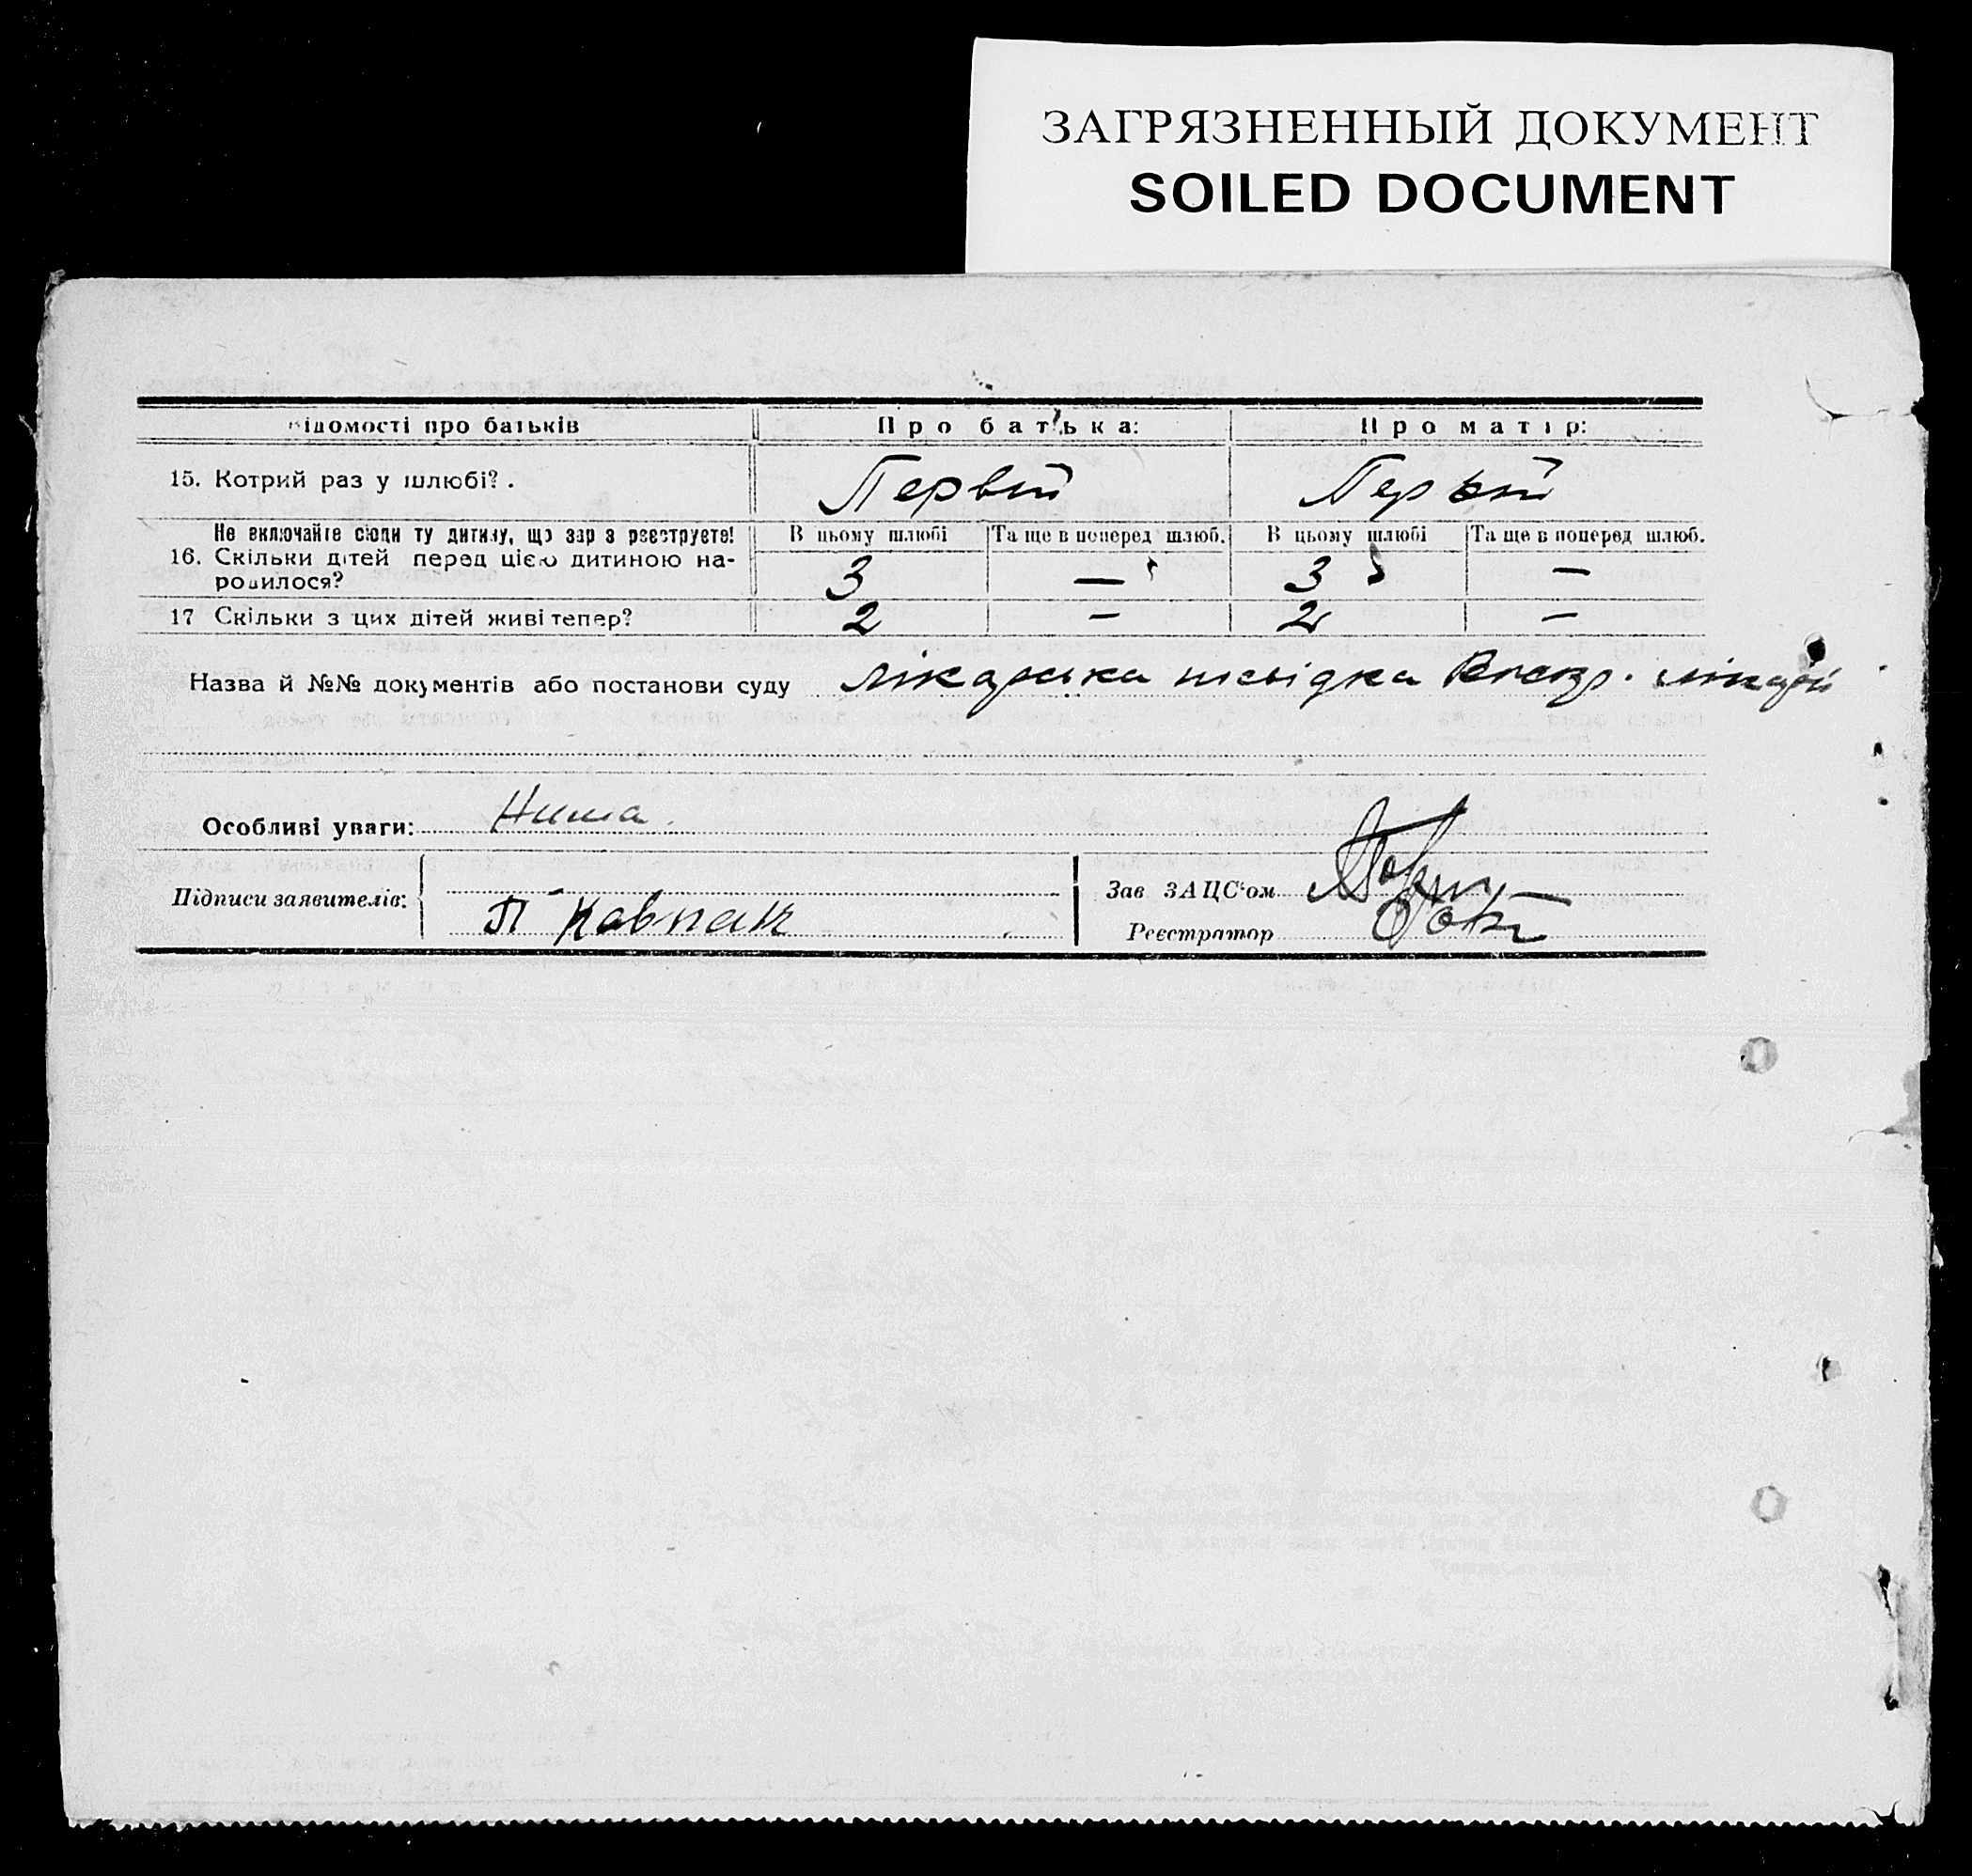 ЗАГРЯЗНЕННЫЙ ДОКУМЕНТ
SOILED DOCUMENT
Відомості про батьків Про батька: Про матір:
15. Котрий раз у шлюбі? . Первый Первый
Не включайте сюди ту дитину, що зараз реєструєте! В цьому шлюбі Та ще в поперед шлюб. В цьому шлюбі Та ще в поперед шлюб.
16. Скільки дітей перед цією дитиною на- 3 — 3 —
родилося?
17 Скільки з цих дітей живі тепер? 2 — 2 —
Назва й №№ документів або постанови суду лікарська посвідка
Особливі уваги:
Підписи заявителів: Зав ЗАЦС'ом
П Ковпак Реєстратор